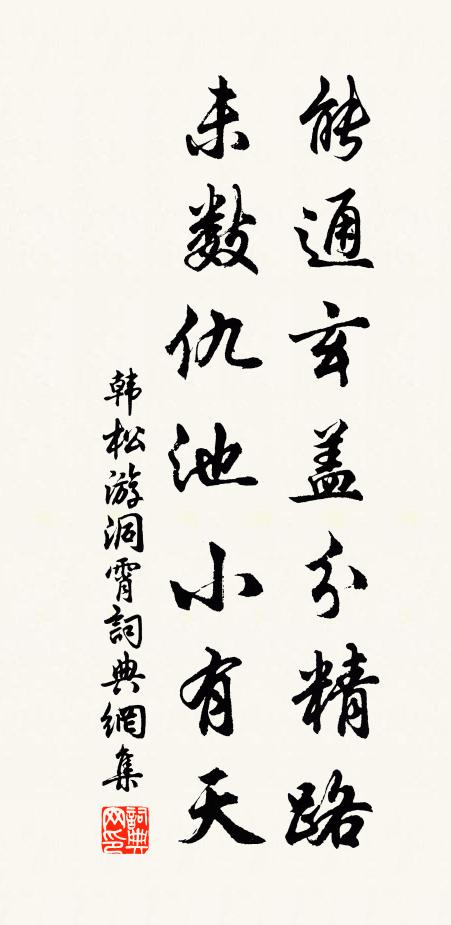 能通玄盖分精路
未数仇池小有天
韩松游洞霄詞典網集
詞典网印